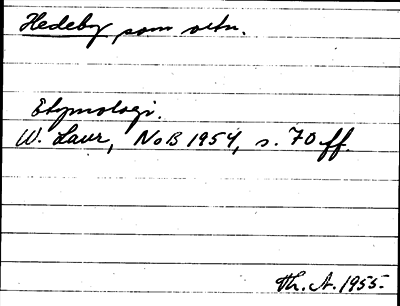 Hedeby som ortn.
Etymologi.
W. Laur, NoB 1954, s. 70 ff.
Th. A. 1955.